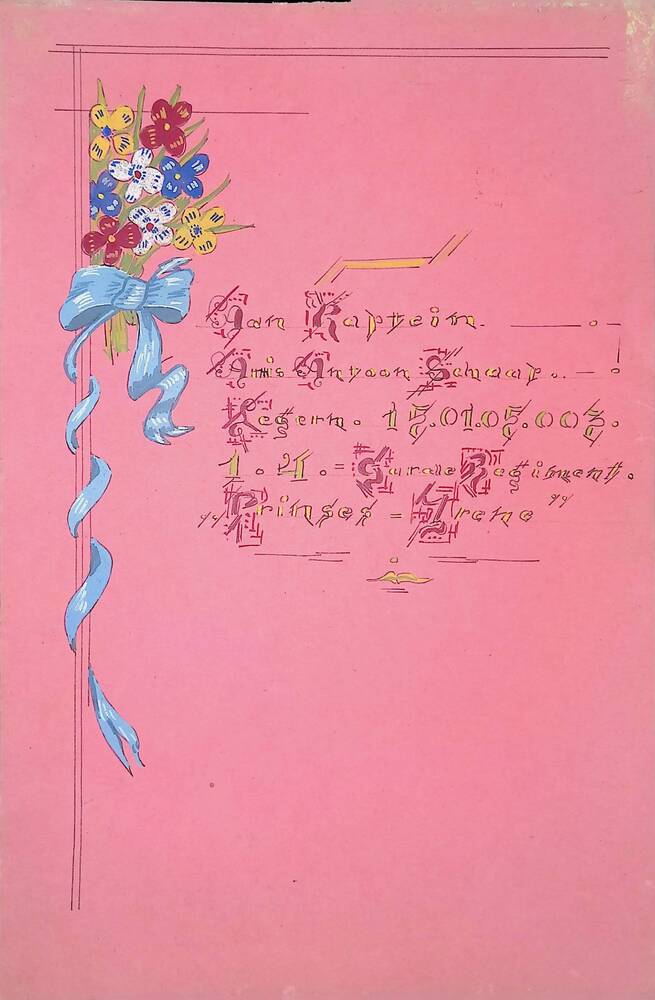 Aan Kaptein.
Aris Antoon Schaap..
Legern. 15.01.05.003.
Garde Regiment.
"Prinses = Irene"